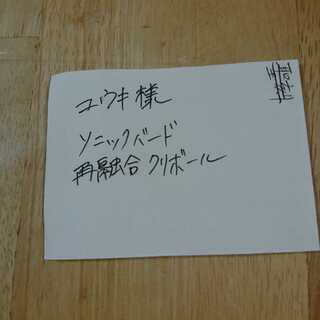 ユウキ様
ソニックバード
再融合 クリボール